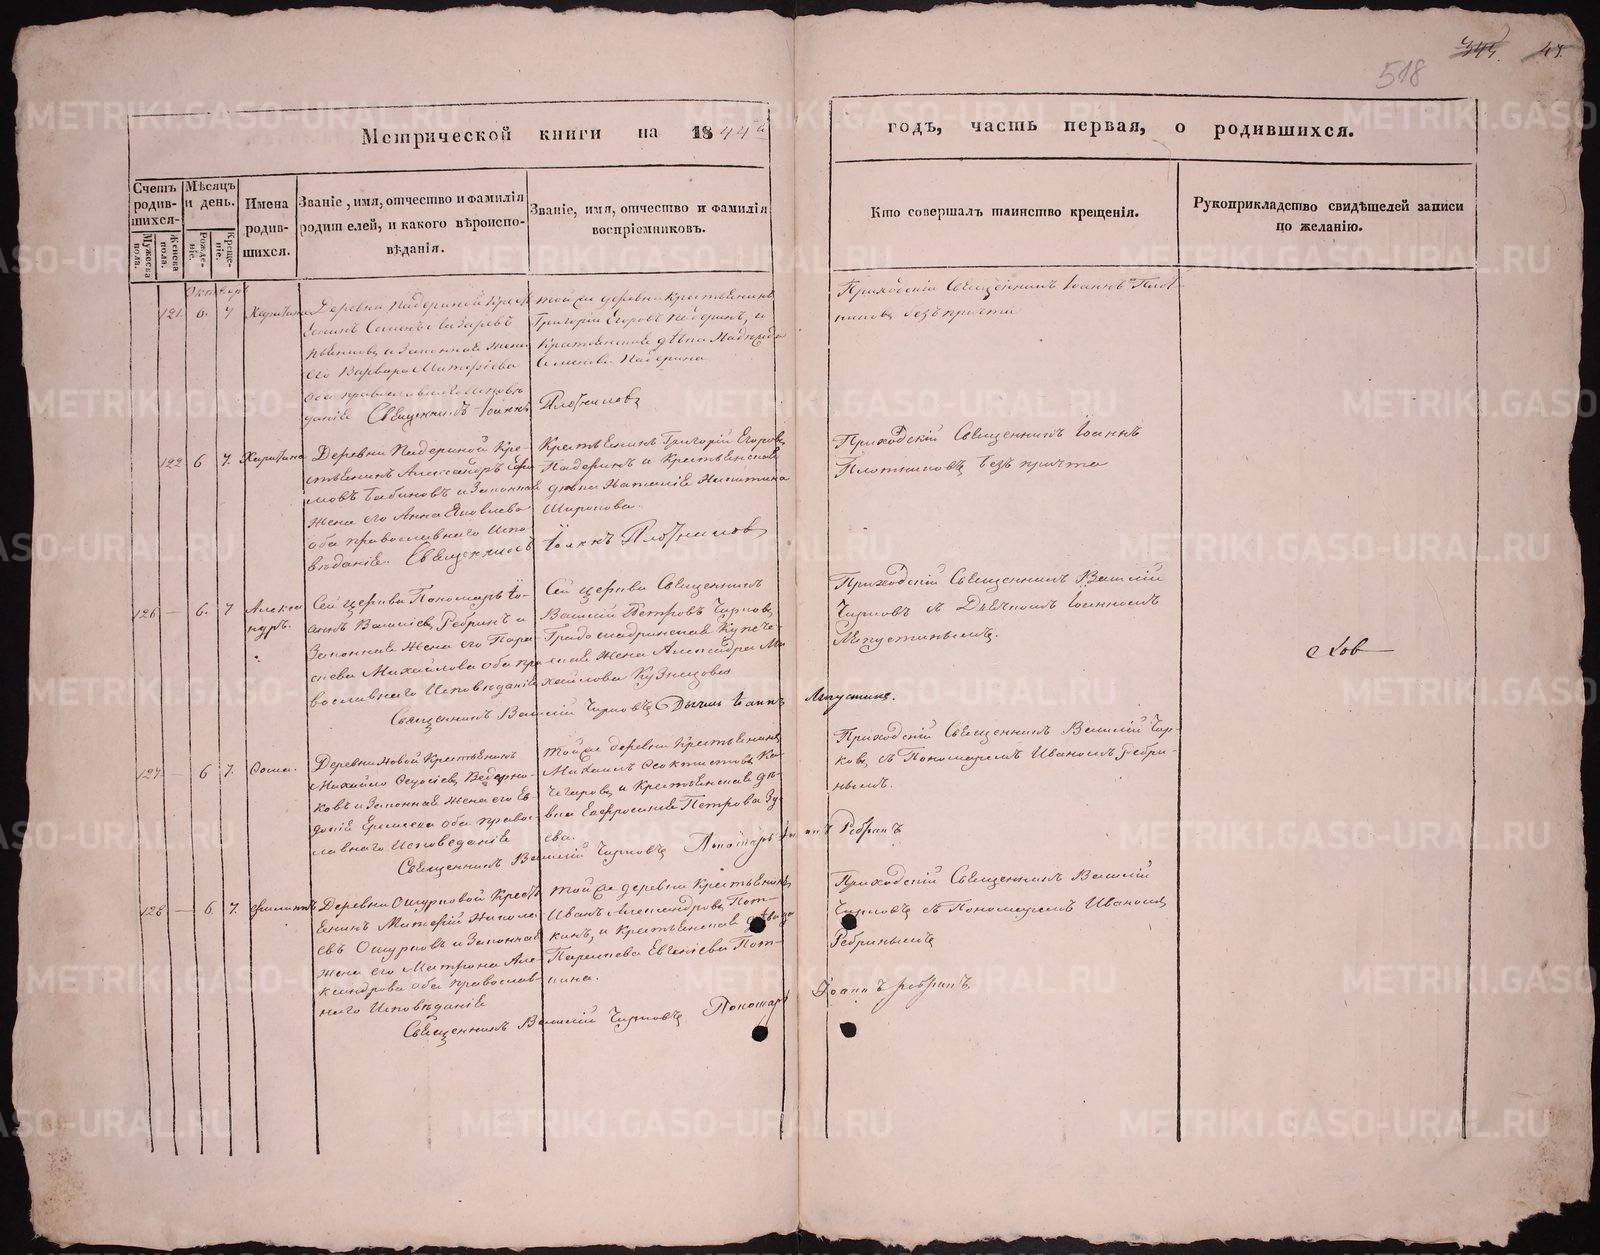 518
Метрической книги на 1844й
годъ, часть первая, о родившихся.
Счетъ родившихся.
Мужеска пола.
Женска пола.
Мѣсяцъ и день.
Рожденіе.
Крещеніе.
Имена родившихся.
Званіе, имя, отчество и фамилія
родителей, и какого вѣроиспо-
вѣданія.
Званіе, имя, отчество и фамилія
воспріемниковъ.
Кто совершалъ таинство крещенія.
Рукоприкладство свидѣтелей записи
по желанію.
Октябрь
121. 6. 7 Харитина
Деревни Падериной Крест-
его Варвара
оба православнаго исповѣ-
даніе Священникъ Іоаннъ Плотниковъ
той же деревни Крестьянинъ
Григорій Егоровъ Падеринъ, и
Крестьянская дѣвка Надежда
Семенова Падерина
Приходскій Священникъ Іоаннъ Плот-
никовъ безъ причта
122 6 7. Харитина
Деревни Падериной Кре-
стьянинъ Александръ
Бабиновъ и Законная
жена его Анна Яковлева
оба православнаго Испо-
вѣданіе. Священникъ Іоаннъ Плотниковъ
Крестьянинъ Григорій Егоровъ
Падеринъ и Крестьянская
дѣвка Наталія Никитина
Широкова.
Приходскій Священникъ Іоаннъ
Плотниковъ безъ причта
126 — 6. 7 Алекса
ндръ.
Сей церкви Пономарь Іо-
аннъ Василіевъ Ребринъ и
Законная жена его Пара-
скева Михайлова оба пра-
вославнаго Исповѣданіе
Священникъ Василій Чирковъ Дьячекъ Іоаннъ Агустинъ.
Сей церкви Священникъ
Василій Петровъ Чирковъ
Градо шадринская Купече-
ская жена Александра Ми-
хайлова Кузнецова
Приходскій Священникъ Василій
Чирковъ съ Дьячкомъ Іоанномъ
127. — 6 7. Фома.
Деревни Новой Крестьянинъ
Михайло Ведерни-
ковъ и Законная жена его Ев-
докія оба право-
славнаго Исповеданіе
Священникъ Василій Чирковъ Пономарь Іоаннъ Ребринъ
той же деревни Крестьянинъ
Михаилъ Феоктистовъ Ко-
чегаровъ и Крестьянская дѣ-
вка Евфросинія Петрова Зу-
ева.
Приходскій Священникъ Василій Чир-
ковъ, съ Пономаремъ Иваномъ Ребри-
нымъ.
128 — 6. 7. Филиппъ
Деревни Ошурковой Кресть-
янинъ Матвій Никола-
евъ Ошурковъ и Законная
жена его Матрона Але-
ксандрова оба православ-
наго Исповѣданіе
Священникъ Василій Чирковъ Пономарь Іоаннъ Ребринъ
той же деревни Крестьянинъ
Иванъ Александровъ Пот-
кинъ, и Крестьянская дѣвица
Параскева Евгеніева Пот-
кина.
Приходскій Священникъ Василій
Чирковъ съ Пономаремъ Иваномъ
Ребринымъ